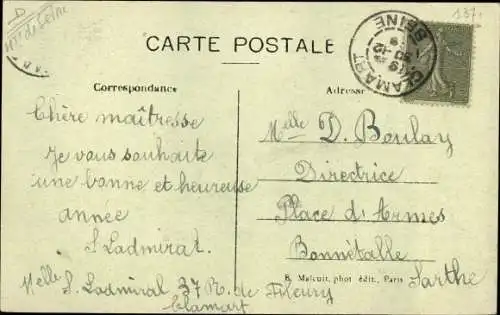 D
Mt de Seine
137
CARTE POSTALE
CLAMART
SEINE
Correspondance
Adresse
Chère maîtresse
Je vous souhaite
une bonne et heureuse
année
S. Ladmiral.
Melle D. Boulay
Directrice
Place d'Armes
Bonnétable
Sarthe
E. Malcuit, phot édit., Paris
Melle S. Ladmiral 37 R. de Fleury
Clamart